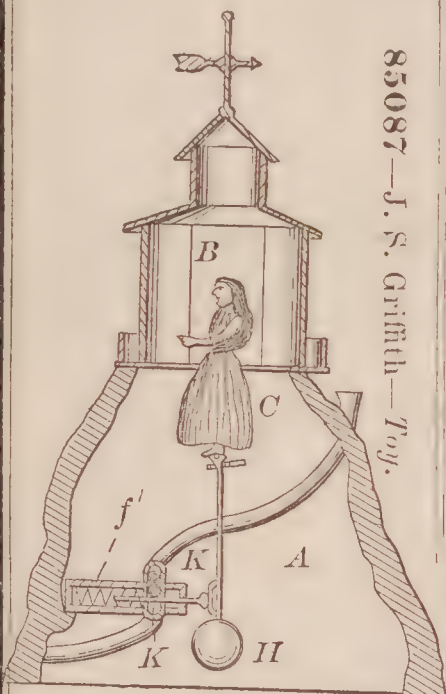 85087—J. S. Griffith—Toy.
B
C
f'
K
A
K
H